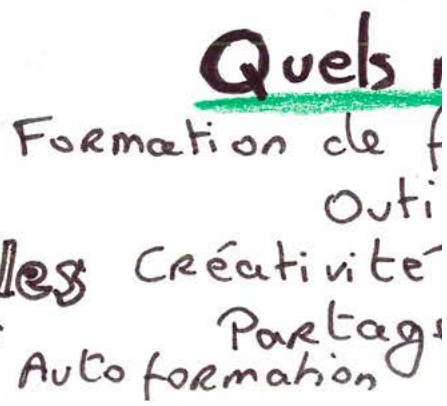 Quels
Formation de
les Créativité
Auto formation